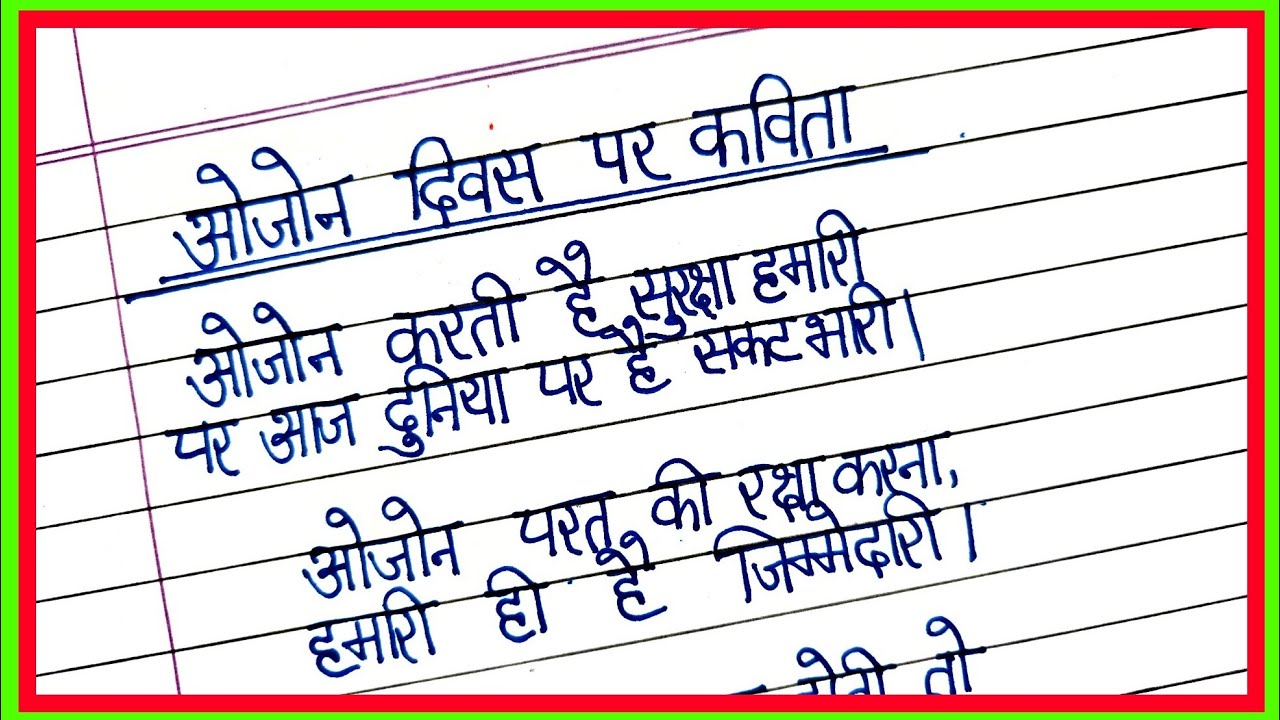 ओजोन दिवस पर कविता
ओजोन करती है सुरक्षा हमारी
पर आज दुनिया पर है सकट भारी।
ओजोन परत की रक्षा करना,
हमारी ही है जिम्मेदारी।
होती तो